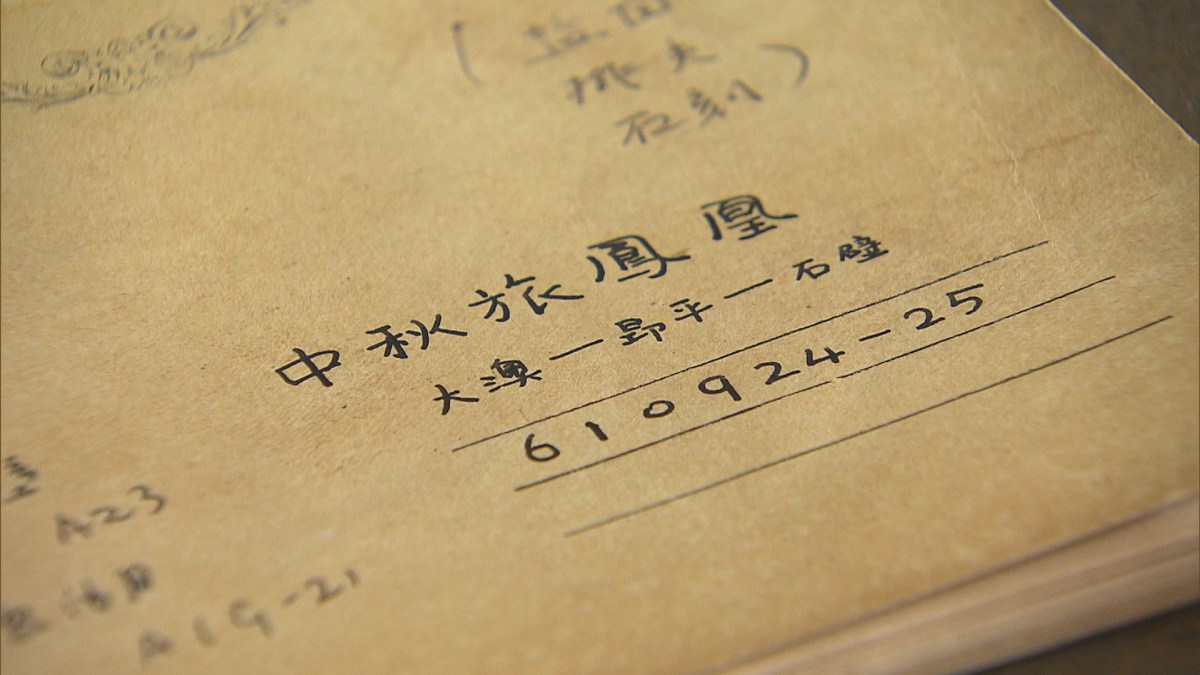 (盐田
桃夫
石刻)
中秋旅鳳凰
大澳一昻平一石壁
610924-25
A23
A19-21